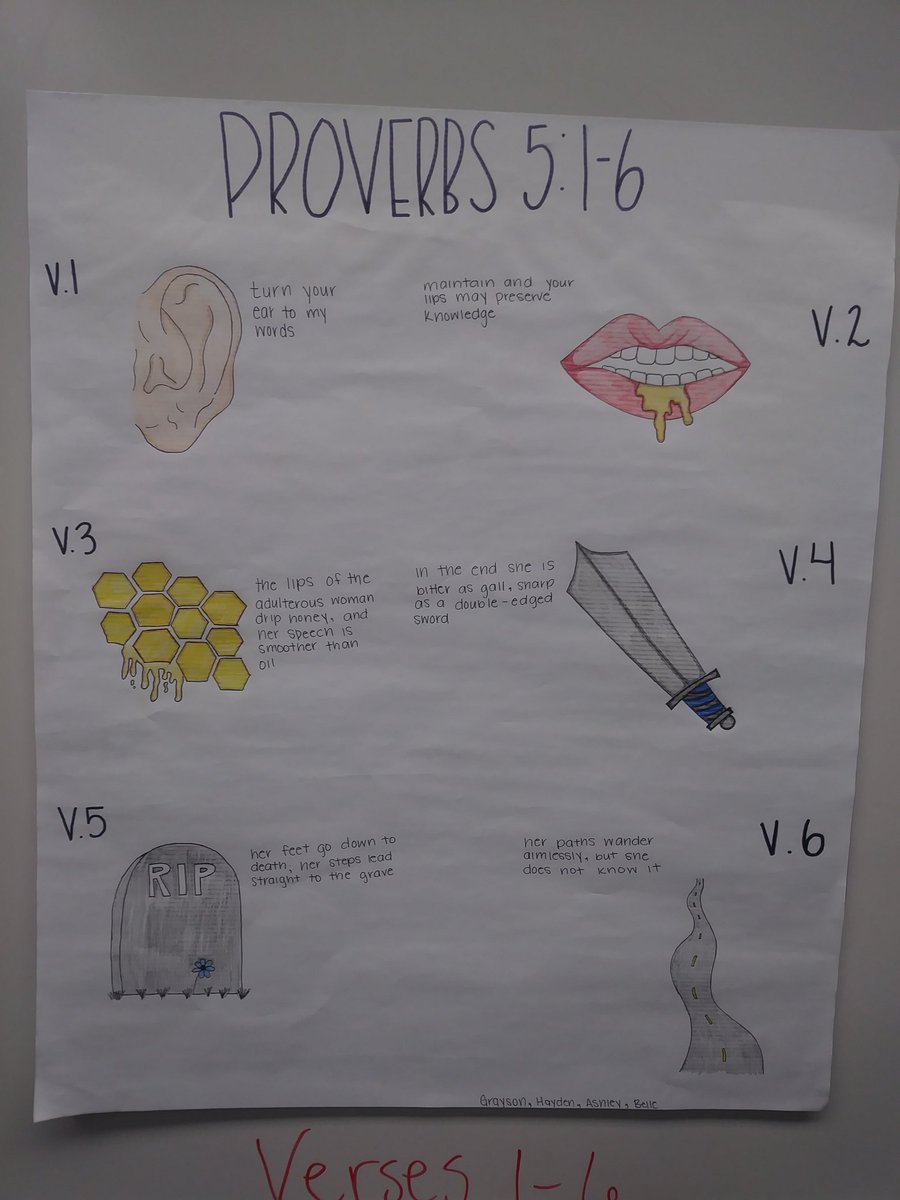 PROVERBS 5:1-6
V.1
turn your
ear to my
words
maintain and your
lips may preserve
knowledge
V.2
V.3
the lips of the
adulterous woman
drip honey, and
her speech is
smoother than
oil
in the end she is
bitter as gall, sharp
as a double-edged
sword
V.4
V.5
RIP
her feet go down to
death; her steps lead
straight to the grave
her paths wander
aimlessly, but she
does not know it
V.6
Grayson, Hayden, Ashley, Belle
Verses 1-6